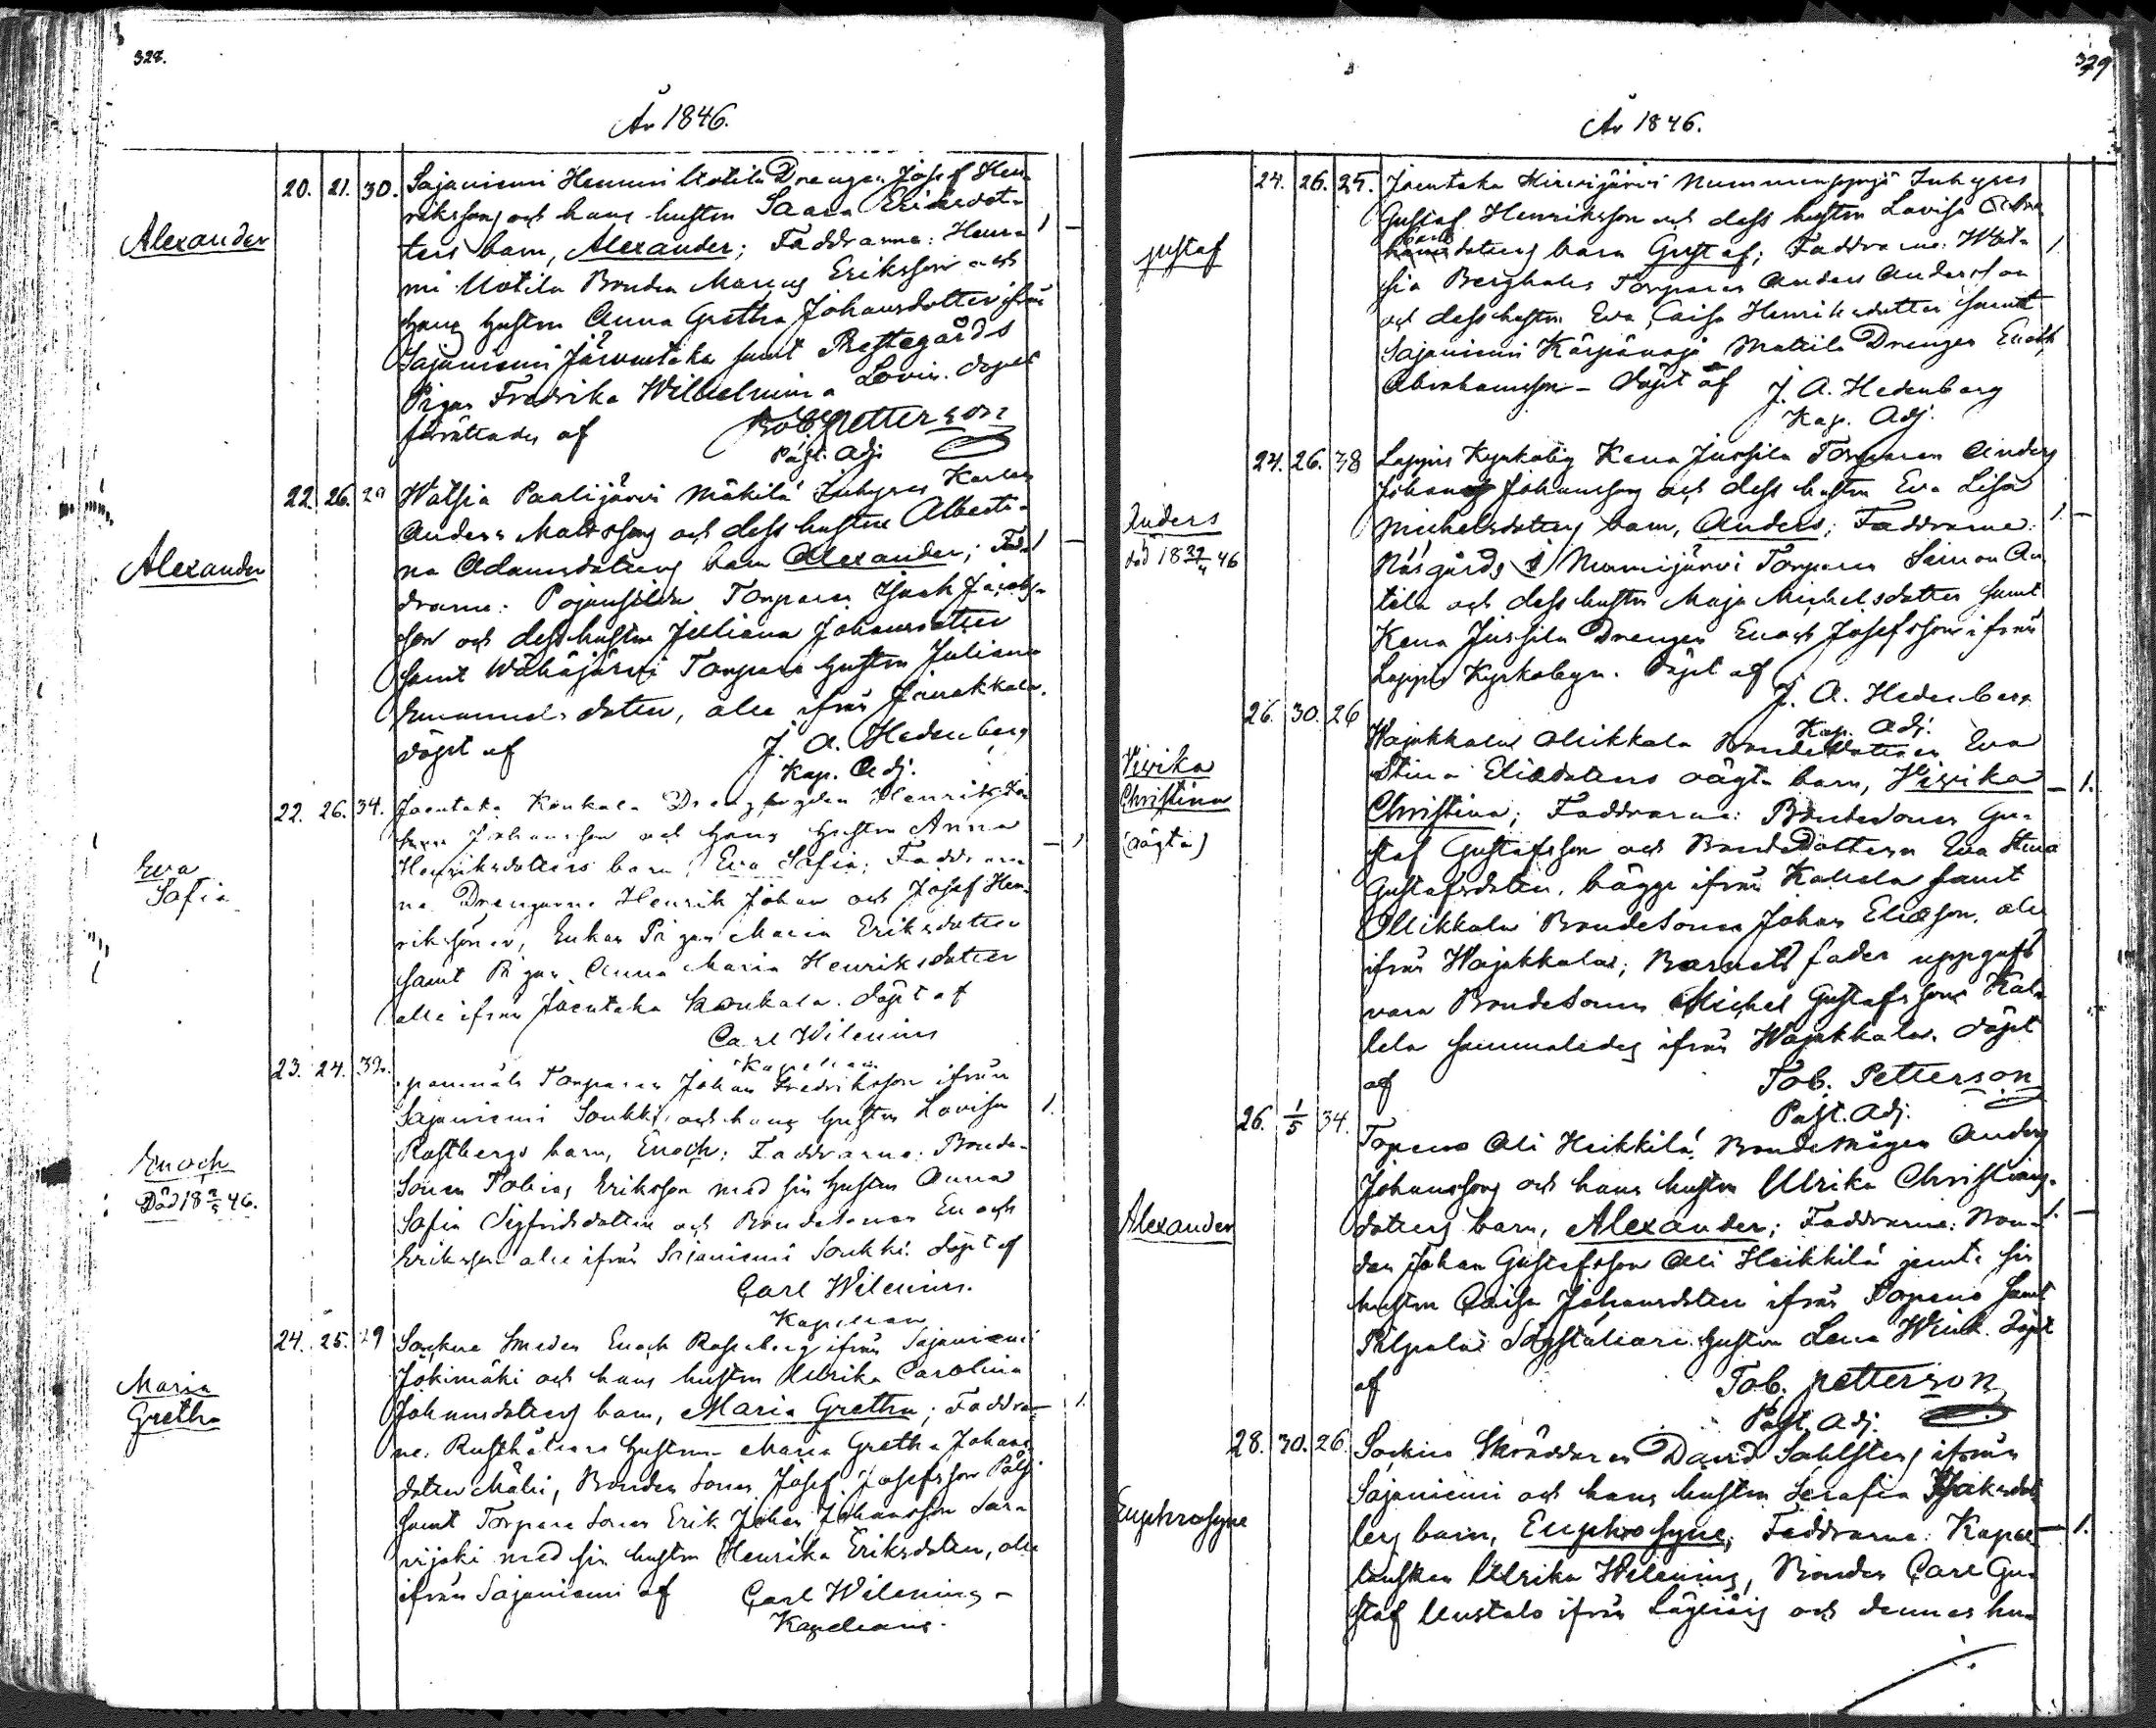 328.
År 1846.
Alexander
20. 21. 30. Sajaniemi Hemmi Uotila Drengen Josef Hen-
rikssons och hans hustru Saara Eriksdot-
ters barn, Alexander; Faddrarne: Hem- 1 –
mi Uotila Bonden Marcus Eriksson och
hans hustru Anna Gretha Johansdotter ifrån
Sajaniemi Järventaka samt Prestegårds
Pigan Fredrika Wilhelmina Lovin. Döpet
förrättades af Tob. Petterson
Past. Adj.
Alexander
22. 26. 29 Watsia Paalijärvi Mäkilä Inhyses Karlen
Anders Mattssons och dess hustru Alberti-
na Adamsdotters barn Alexander; Fad- 1 –
drarne: Torparen Isak Jacobs-
son och dess hustru Juliana Johansdotter
samt Wähäjärvi Torpare hustru Juliana
Emanuelsdotter, alle ifrån Janakkala.
Döpt af J. A. Hedenberg
Kap. Adj.
Eva
Sofia
22. 26. 34. Joentaka Koukala Drengen Henrik
Johansson och hans hustru Anna
Henriksdotters barn, Eva Sofia; Faddrar- – 1
ne Drengarne Henrik Johan och Josef Hen-
rikssöner, Enkan Pigan Maria Eriksdotter
samt Pigan Anna Maria Henriksdotter
alle ifrån Joentaka Koukala. Döpt af
Carl Wilenius
Kapellan.
Enoch
Död 18 2/5 46.
23. 24. 32. Torparen Johan Fredriksson ifrån
Sajaniemi Soukki och hans hustru Lovisa 1.
Rostbergs barn, Enoch; Faddrarne: Bonde-
Sonen Tobias Eriksson med sin hustru Anna
Sofia Sigfridsdotter och Bondesonen Enoch
Eriksson alle ifrån Sajaniemi Soukki. Döpt af
Carl Wilenius.
Kapellan
Maria
Gretha
24. 25. 29 Sockne Smeden Enoch Rosenberg ifrån Sajaniemi
Jokimäki och hans hustru Ulrika Carolina
Johansdotters barn, Maria Gretha; Faddrar- – 1.
ne: Rusthållare hustrun Maria Gretha Johans-
dotter Mäki, Bonden Sonen Josef Josefsson
samt Torpare Sonen Erik Johan Johansson
med sin hustru Henrika Eriksdotter, alle
ifrån Sajaniemi af Carl Wilenius
Kapellan.
329
År 1846.
Gustaf
24. 26. 25. Joentaka Hirvijärvi Nummenpojas Inhyses
Gustaf Henriksson och dess hustru Lovisa
dotters barn Gustaf; Faddrarne: Wat- 1
sia Berghalls Torparen Anders Andersson
och dess hustru Eva Caisa Henriksdotter samt
Sajaniemi Mattila Drengen Enoch
Abrahamsson – Döpt af J. A. Hedenberg
Kap. Adj.
Anders
död 18 29/4 46
24. 26. 38 Loppis Kyrkoby Kena Jussila Torparen Anders
Johan Johanssons och dess hustru Eva Lisa
Michelsdotters barn, Anders; Faddrarne: 1. –
Näsgårds Torparen Simon An
tila och dess hustru Maja Michelsdotter samt
Kena Jussila Drengen Enoch Josefsson ifrån
Loppis Kyrkobyn. Döpt af
J. A. Hedenberg
Kap. Adj.
Vivika
Christina
(oägta)
26. 30. 26 Wojakkala Ollikkala Bondedottren Eva
Stina Eliædotters oägta barn, Vivika – 1.
Christina; Faddrarne: Bondesonen Gu-
staf Gustafsson och Bondedottern Eva Stina
Gustafsdotter, bägge ifrån Kallela samt
Ollikkala Bondesonen Johan Eliæson, alle
ifrån Wojakkala; Barnets fader uppgafs
vara Bondesonen Michel Gustafsson Kal-
lela sammaledes ifrån Wojakkala. Döpt
af Tob. Petterson
Past. Adj.
Alexander
26. 1/5 34. Topeno Ali Heikkilä Bondemågen Anders
Johanssons och hans hustru Ulrika Christians-
dotters barn, Alexander; Faddrarne: Bon- 1. –
den Johan Gustafsson Ali Heikkilä jemte sin
hustru Caisa Johansdotter ifrån Topeno samt
Pilpala hustru Lena Wink. Döpt
af Tob. Petterson
Past. Adj.
Euphrosyne
28. 30. 26. Sockne Skräddaren David Sahlsten ifrån
Sajaniemi och hans hustru Serafia Isaksdot-
ters barn, Euphrosyne; Faddrarne: Kapel- – 1.
lanskan Ulrika Wilenius, Bonden Carl Gu-
staf Uustalo ifrån Läyliäis och dennes hu-